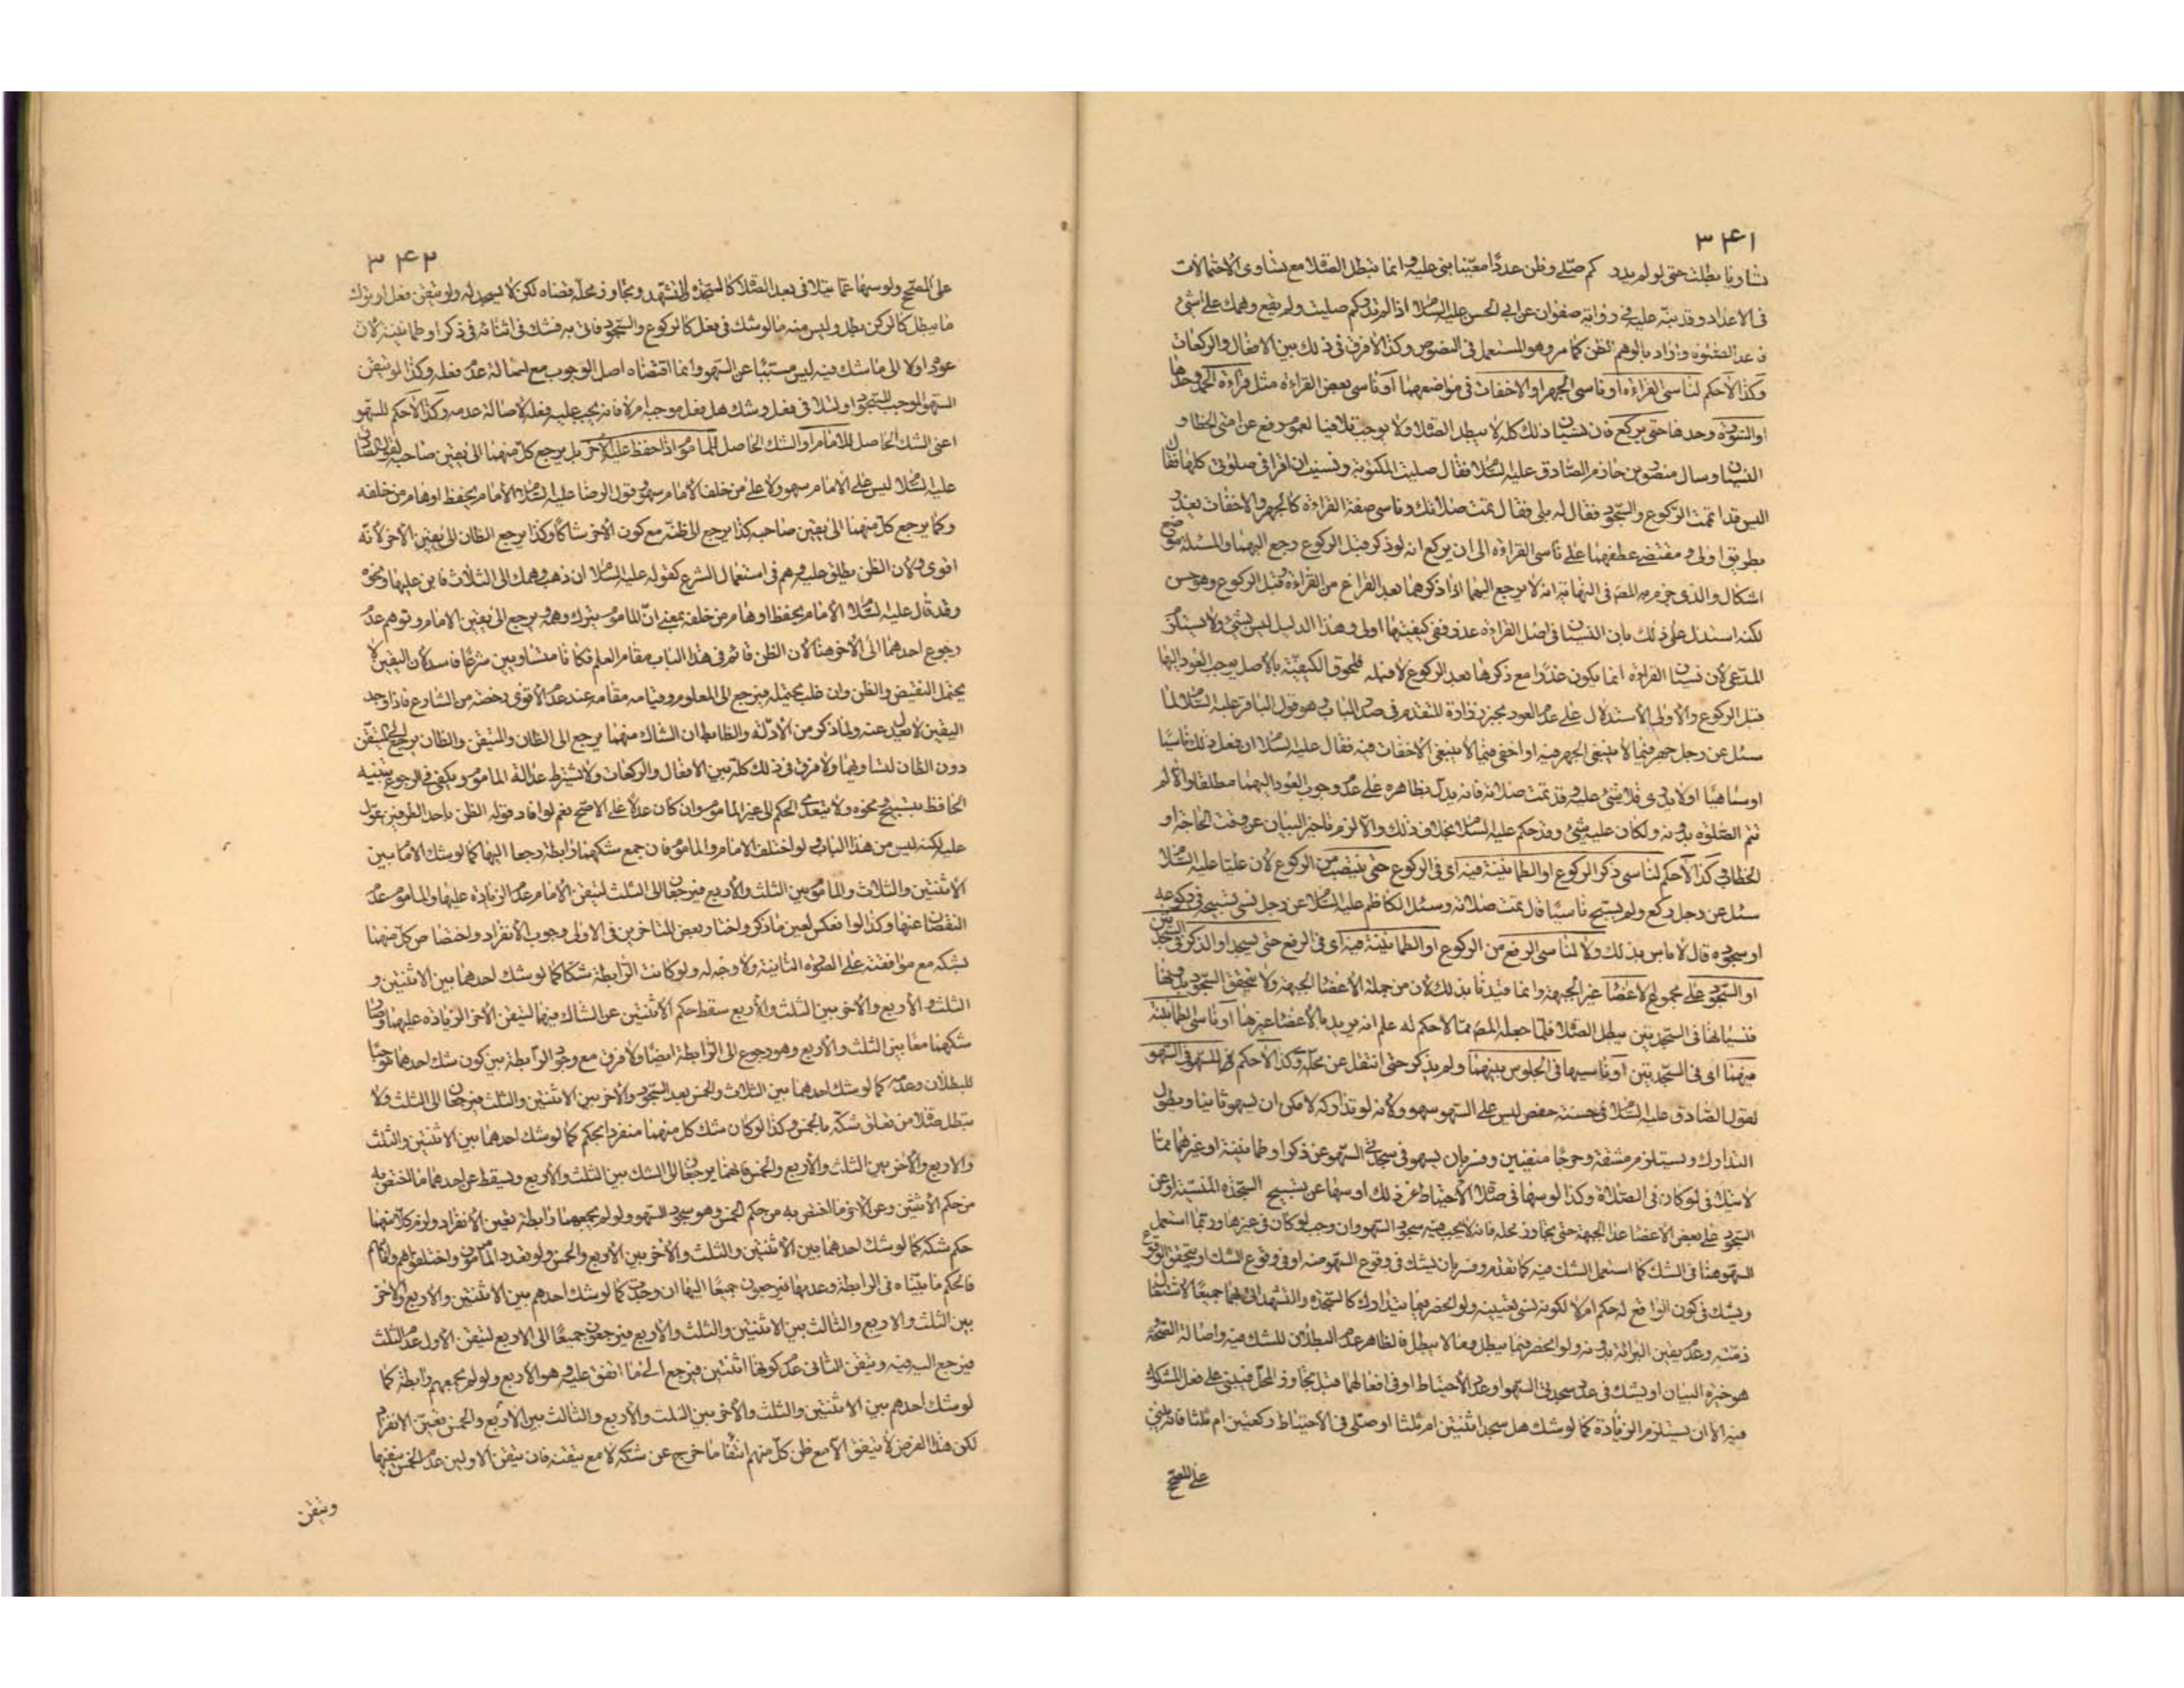 ٣٤١
تساويا بطلت حتى لو لم يدر كم صلى وظن عددا معينا بنى عليه وانما تبطل الصلاة مع تساوى الاحتمالات
فى الاعداد وقد نبه عليه فى رواية صفوان عن ابى الحسن عليه السلام اذا لم تدر كم صليت ولم يقع وهمك على شئ
فاعد الصلوة واراد بالوهم الظن كما مر وهو المستعمل فى النصوص وكذا لا فرق فى ذلك بين الافعال والركعات
وكذا لا حكم لناسى القراءة او ناسى الجهر او الاخفات فى مواضعهما او ناسى بعض القراءة مثل قراءة الحمد وحدها
او السورة وحدها حتى يركع فان نسيان ذلك كله لا يبطل الصلاة ولا يوجب تلافيا لعموم رفع عن امتى الخطا و
النسيان وسال منصور بن حازم الصادق عليه السلام فقال صليت المكتوبة ونسيت ان اقرا فى صلوتى كلها فقال
اليس قد اتممت الركوع والسجود فقال له بلى فقال تمت صلاتك وناسى صفة القراءة كالجهر والاخفات يعذر
بطريق اولى و مقتضى عطفهما على ناسى القراءة الى ان يركع انه لو ذكر قبل الركوع رجع اليهما والمسئلة موضع
اشكال والذى جزم به المصه فى النهاية انه لا يرجع اليهما اذا ذكرهما بعد الفراغ من القراءة وقبل الركوع وهو حسن
لكنه استدل على ذلك بان النسيان فى اصل القراءة عذر ففى كيفيتها اولى وهذا الدليل ليس بشئ ولا يستلزم
المدعى لان نسيان القراءة انما يكون عذرا مع ذكرها بعد الركوع لا قبله فلحوق الكيفية بالاصل يوجب العود اليها
قبل الركوع والاولى الاستدلال على عدم العود بخبر زرارة المتقدم فى صدر الباب وهو قول الباقر عليه السلام لما
سئل عن رجل جهر فيما لا ينبغى الجهر فيه او اخفى فيما لا ينبغى الاخفات فيه فقال عليه السلام ان فعل ذلك ناسيا
او ساهيا او لا يدرى فلا شئ عليه وقد تمت صلاته فانه يدل بظاهره على عدم وجوب العود اليهما مطلقا والا لم
تتم الصلوة بدونه ولكان عليه شئ وقد حكم عليه السلام بخلاف ذلك والا لزم تاخير البيان عن وقت الحاجة او
الخطاب وكذا لا حكم لناسى ذكر الركوع او الطمانينة فيه اى فى الركوع حتى ينتصب من الركوع لان عليا عليه السلام
سئل عن رجل ركع ولم يسبح ناسيا قال تمت صلاته وسئل الكاظم عليه السلام عن رجل نسى تسبيحة فى ركوعه
او سجوده قال لا باس بذلك ولا لناسى الرفع من الركوع او الطمانينة فيه اى فى الرفع حتى يسجد او الذكر فى السجدتين
او السجود على مجموع الاعضا غير الجبهة وانما قيدنا بذلك لان من جملة الاعضا الجبهة ولا يتحقق السجود بدونها
فنسيانها فى السجدتين مبطل الصلاة فلما جعله المصه مما لا حكم له علم انه يريد بالاعضا غيرها او ناسى الطمانينة
فيهما اى فى السجدتين او ناسيها فى الجلوس بينهما ولم يذكر حتى انتقل عن محله وكذا لا حكم للسهو فى السهو
لقول الصادق عليه السلام فى حسنة حفص ليس على السهو سهو ولانه لو تداركه لامكن ان يسهو ثانيا ويطول
التدارك ويستلزم مشقة وحرجا منفيين وفسر بان يسهو فى سجدتى السهو عن ذكر او طمانينة او غيرهما مما
لا يتدارك لو كان فى الصلاة وكذا لو سها فى صلاة الاحتياط عن ذلك او سها عن تسبيح السجدة المنسية او عن
السجود على بعض الاعضا عدا الجبهة حتى تجاوز محله فانه لا يجب فيه سجود السهو وان وجب لو كان فى غيرها وربما استعمل
السهو هنا فى الشك كما استعمل الشك فيه كما تقدم وفسر بان يشك فى وقوع السهو منه او فى وقوع الشك او يتحقق الوقوع
ويشك فى كون الواقع له حكم ام لا لكونه نسى تعيينه ولو انحصر فيما يتدارك كالسجدة والتشهد اتى بهما جميعا لاشتغال
ذمته وعدم يقين البرائة بدونه ولو انحصر فيما يبطل وما لا يبطل فالظاهر عدم البطلان للشك فيه واصالة الصحة
هو خيرة البيان او يشك فى عدد سجدتى السهو او عدد الاحتياط او فى افعالهما قبل تجاوز المحل فيبنى على فعل المشكوك
فيه الا ان يستلزم الزيادة كما لو شك هل سجد اثنتين ام ثلثا او صلى فى الاحتياط ركعتين ام ثلثا فانه يبنى
على المصحح
٣٤٢
على المصحح ولو سها عما يتلافى بعد الصلاة كالسجدة والتشهد وتجاوز محله قضاه لكن لا يسجد له ولو تيقن فعل او ترك
ما يبطل كالركن بطل وليس منه ما لو شك فى فعل كالركوع والسجود فاتى به فشك فى اثنائه فى ذكر او طمانينة لان
عوده اولا الى ما شك فيه ليس مسببا عن السهو وانما اقتضاه اصل الوجوب مع اصالة عدم فعله وكذا لو تيقن
السهو الموجب للسجود او لتلافى فعل وشك هل فعل موجبه ام لا فانه يجب عليه فعله لاصالة عدمه وكذا لا حكم للسهو
اعنى الشك الحاصل للامام او الشك الحاصل للماموم اذا حفظ عليه الاخر بل يرجع كل منهما الى يقين صاحبه لقول الصادق
عليه السلام ليس على الامام سهو ولا على من خلف الامام سهو وقول الرضا عليه السلام الامام يحفظ اوهام من خلفه
وكما يرجع كل منهما الى يقين صاحبه كذا يرجع الى ظنه مع كون الاخر شاكا وكذا يرجع الظان الى يقين الاخر لانه
اقوى ولان الظن يطلق عليه وهم فى استعمال الشرع كقوله عليه السلام ان ذهب وهمك الى الثلاث فابن عليها ونحوه
وقد قال عليه السلام الامام يحفظ اوهام من خلفه بمعنى ان الماموم يترك وهمه ويرجع الى يقين الامام وتوهم عدم
رجوع احدهما الى الاخر هنا لان الظن قائم فى هذا الباب مقام العلم فكانا متساويين شرعا فاسد لان اليقين لا
يحتمل النقيض والظن وان غلب يحتمله فيرجع الى المعلوم وقيامه مقامه عند عدم الاقوى رخصة من الشارع فاذا وجد
اليقين لا يعدل عنه ولما ذكر من الادلة والظاهر ان الشاك منهما يرجع الى الظان والمتيقن والظان يرجع الى المتيقن
دون الظان لتساويهما ولا فرق فى ذلك كله بين الافعال والركعات ولا تشترط عدالة الماموم ويكفى فى الرجوع تنبيه
الحافظ بتسبيح ونحوه ولا يتعدى الحكم الى غير الماموم وان كان عدلا على الاصح نعم لو افاد قوله الظن باحد الطرفين عول
عليه لكنه ليس من هذا الباب ولو اختلف الامام والماموم فان جمع شكهما رابطة رجعا اليها كما لو شك الامام بين
الاثنتين والثلاث والماموم بين الثلث والاربع فيرجعان الى الثلث لتيقن الامام عدم الزيادة عليها والماموم عدم
النقصان عنها وكذا لو انعكس لعين ما ذكر واختار بعض المتاخرين فى الاولى وجوب الانفراد واختصاص كل منهما
بشكه مع موافقته على الصورة الثانية ولا وجه له ولو كانت الرابطة شكا كما لو شك احدهما بين الاثنتين و
الثلث والاربع والاخر بين الثلث والاربع سقط حكم الاثنتين عن الشاك فيهما لتيقن الاخر الزيادة عليهما وصار
شكهما معا بين الثلث والاربع وهو رجوع الى الرابطة ايضا ولا فرق مع وجود الرابطة بين كون شك احدهما موجبا
للبطلان وعدمه كما لو شك احدهما بين الثلاث والخمس بعد السجود والاخر بين الاثنتين والثلث فيرجعان الى الثلث ولا
تبطل صلاة من تعلق شكه بالخمس وكذا لو كان شك كل منهما منفردا بحكم كما لو شك احدهما بين الاثنتين والثلث
والاربع والاخر بين الثلث والاربع والخمس فانهما يرجعان الى الشك بين الثلث والاربع ويسقط عن احدهما ما اختص به
من حكم الاثنتين وعن الاخر ما اختص به من حكم الخمس وهو سجود السهو ولو لم يجمعهما رابطة تعين الانفراد ولزم كلا منهما
حكم شكه كما لو شك احدهما بين الاثنتين والثلث والاخر بين الاربع والخمس ولو تعدد المامومون واختلفوا هم والامام
فالحكم ما بيناه فى الرابطة وعدمها فيرجعون جميعا اليها ان وجدت كما لو شك احدهم بين الاثنتين والاربع والاخر
بين الثلث والاربع والثالث بين الاثنتين والثلث والاربع فيرجعون جميعا الى الاربع لتيقن الاول عدم الثلث
فيرجع اليه فيه وتيقن الثانى عدم كونها اثنتين فيرجع الى ما اتفق عليه وهو الاربع ولو لم يجمعهم رابطة كما
لو شك احدهم بين الاثنتين والثلث والاخر بين الثلث والاربع والثالث بين الاربع والخمس تعين الانفراد
لكن هذا الفرض لا يتفق الا مع ظن كل منهم انتفا ما خرج عن شكه لا مع تيقنه فان تيقن الاولين عدم الخمس ينفيها
وتيقن